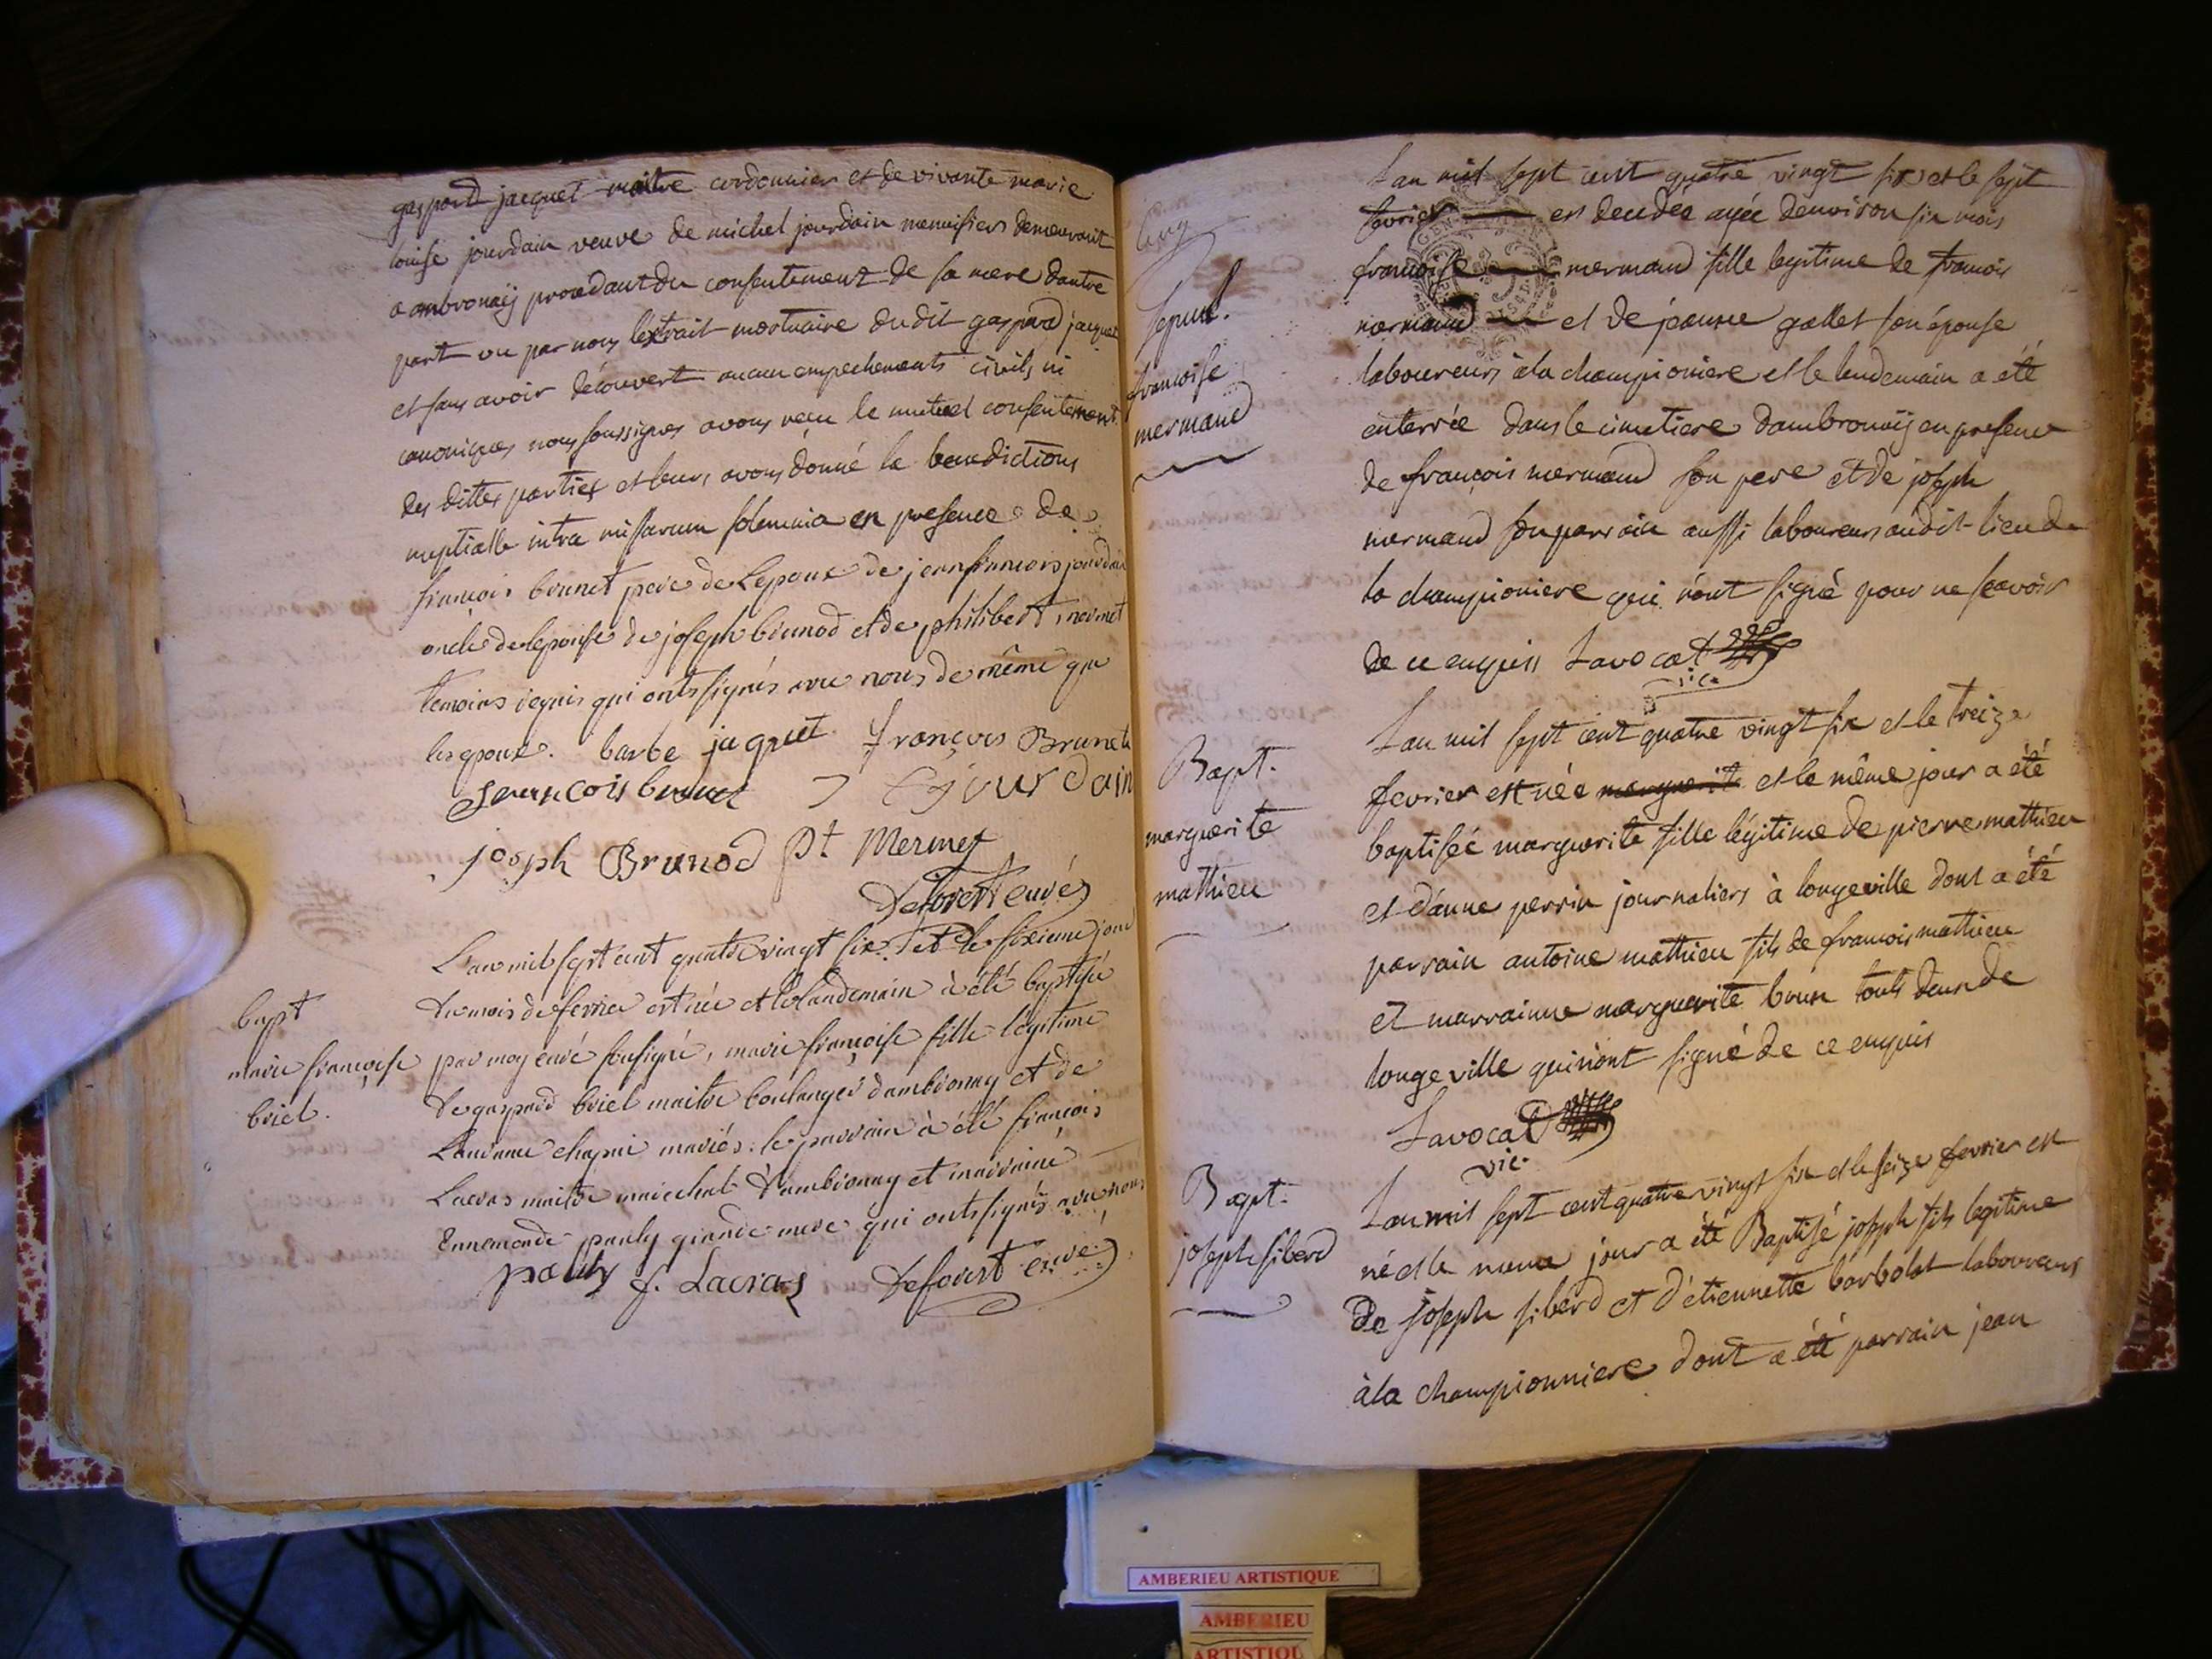 gaspard jacquet maitre cordonnier et de vivante marie
louise jourdain veuve de michel jourdain menuisiers demeurant
a ambronaÿ procedant du consentement de sa mere dautre
part vu par nous lextrait mortuaire du dit gaspard jacquet
et sans avoir découvert aucun empechements civils ni
canoniques nous soussignes avons recu le mutuel consentement
des dittes parties et leurs avons donné la benedictions
nuptialle intra missarum solemnia en presence de
françois brunet pere de Lepoux de jean françois jourdain
oncle de lepouse de joseph brunod et de philibert mermet
temoins requis qui onts signés avec nous de même que
les epoux. barbe jaquet françois Brunet
francois brunet jourdain
joseph Brunod pt Mermet
Deforest curé
bapt
marie françoise
briel.
L'an mil sept cent quatre vingt six et le sixieme jour
du mois de fevrier est née et le landemain à été baptisée
par moy curé sousigné, marie françoise fille légitime
de gaspard briel maitre boulanger d'ambronay et de
mariés. le parrain à été françois
Lacras maitre marechal d'ambronay et marraine
Ennemonde pauly grande mere qui onts signés avec nous
pauly f. Lacras Deforest curé
Sepul.
francoise
mermand
Lan mil sept cent quatre vingt six et le sept
fevrier est decedée agée denviron six mois
francoise mermand fille legitime de francois
mermand et de jeanne gallet son épouse
laboureurs à la championiere et le lendemain a été
enterrée dans le cimetiere dambronaÿ en presence
de françois mermand son pere et de joseph
mermand son parrain aussi laboureurs au dit lieu de
la championiere qui n'ont signé pour ne scavoir
de ce enquis Lavocat
vic.
Bapt.
marguerite
mathieu
Lan mil sept cent quatre vingt six et le treize
fevrier est née marguerite et le même jour a été
baptisée marguerite fille légitime de pierre mathieu
et d'anne perrin journaliers à longeville dont a été
parrain antoine mathieu fils de francois mathieu
et marrainne marguerite brun touts deux de
longeville qui n'ont signé de ce enquis
Lavocat
vic.
Bapt.
joseph siberd
Lan mil sept cent quatre vingt six et le seize fevrier est
né et le meme jour a été Baptisé joseph fils legitime
de joseph siberd et d'étiennette barbolat laboureurs
à la championniere dont a été parrain jean
AMBERIEU ARTISTIQUE
AMBERIEU
ARTISTIQU